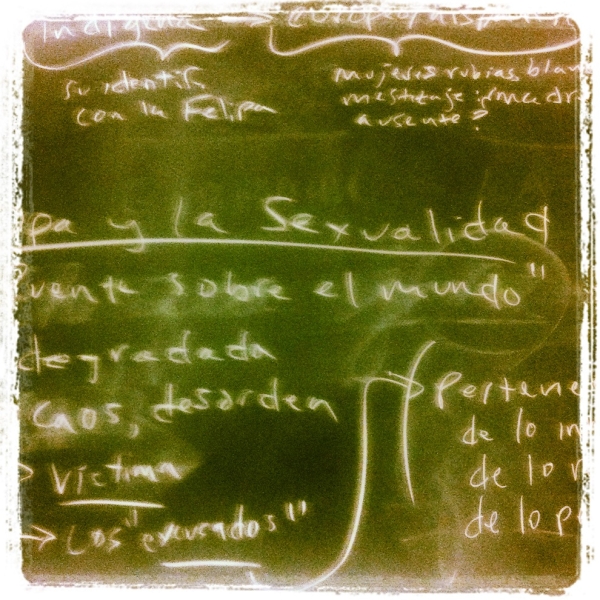 Indígena →
su identif
con la Felipa
mujeres rubias, blan
mestizaje
ausente?
pa y la Sexualidad
sobre el mundo"
degradada
Caos, desorden
→ Víctima
→ Los "excusados"
→ Pertene
de lo in
de lo
de lo p